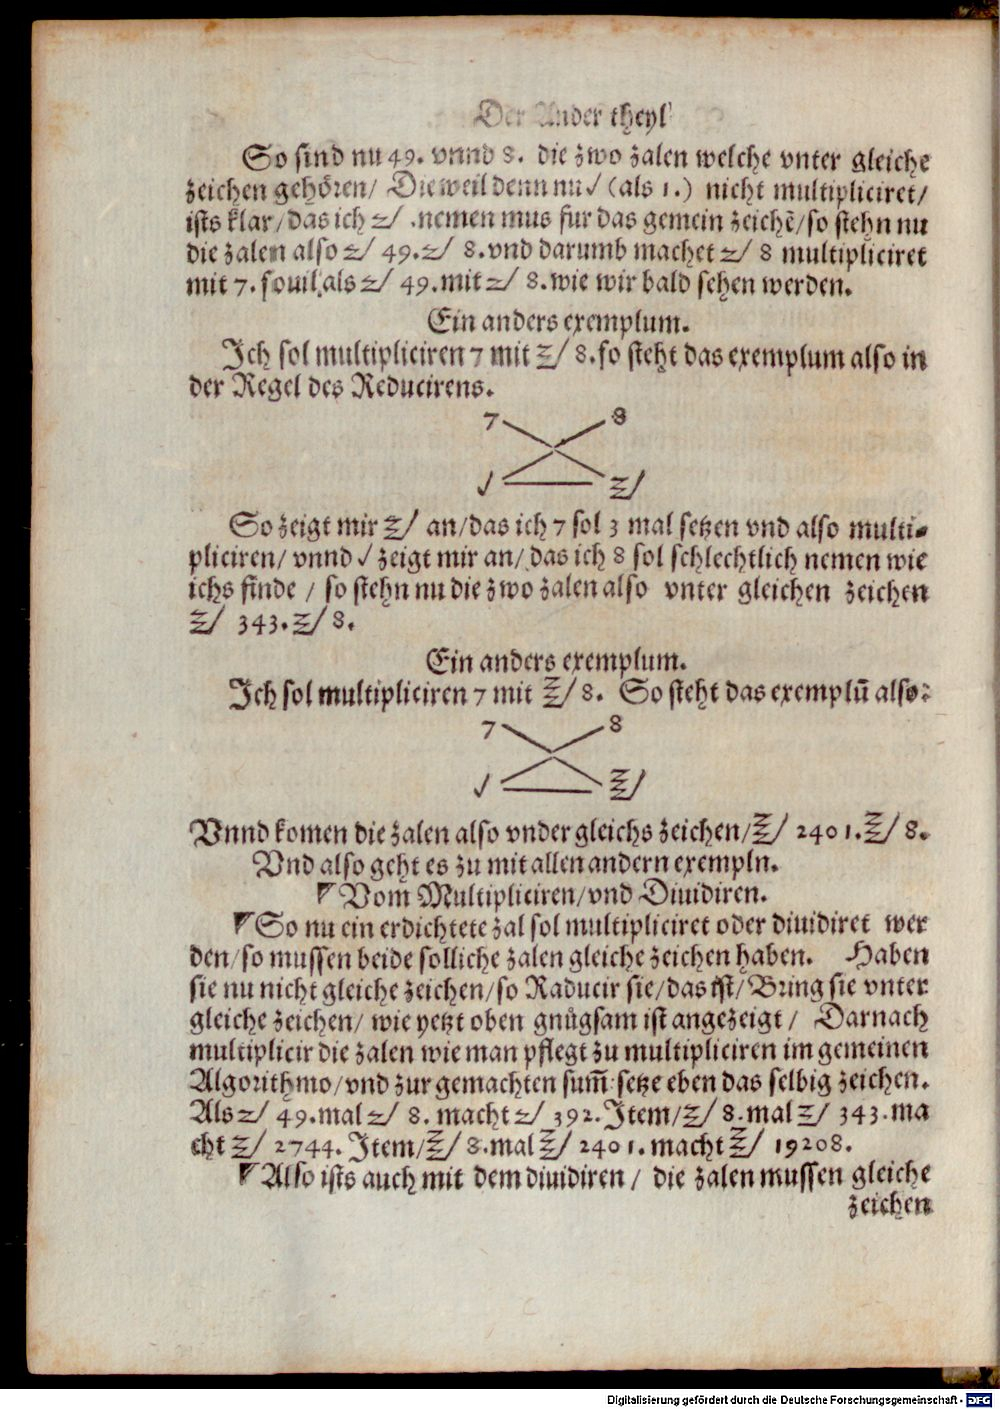 Der Ander theyl
So sind nu 49. vnnd 8. die zwo zalen welche vnter gleiche
zeichen gehören/ Die weil denn nu √ (als 1.) nicht multipliciret/
ists klar/ das ich z/ .nemen mus fur das gemein zeichē/ so stehn nu
die zalen also z/ 49. z/ 8. vnd darumb machet z/ 8 multipliciret
mit 7. souil als z/ 49. mit z/ 8. wie wir bald sehen werden.
Ein anders exemplum.
Ich sol multipliciren 7 mit z/ 8. so steht das exemplum also in
der Regel des Reducirens.
7 8
√ z/
So zeigt mir z/ an/ das ich 7 sol 3 mal setzen vnd also multi-
pliciren/ vnnd √ zeigt mir an/ das ich 8 sol schlechtlich nemen wie
ichs finde / so stehn nu die zwo zalen also vnter gleichen zeichen
z/ 343. z/ 8.
Ein anders exemplum.
Ich sol multipliciren 7 mit z/ 8. So steht das exemplū also:
7 8
√ z/
Vnnd komen die zalen also vnder gleichs zeichen/ z/ 2401. z/ 8.
Vnd also geht es zu mit allen andern exempln.
Vom Multipliciren/ vnd Diuidiren.
So nu ein erdichtete zal sol multipliciret oder diuidiret wer
den/ so mussen beide solliche zalen gleiche zeichen haben. Haben
sie nu nicht gleiche zeichen/ so Raducir sie/ das ist/ Bring sie vnter
gleiche zeichen/ wie yetzt oben gnůgsam ist angezeigt / Darnach
multiplicir die zalen wie man pflegt zu multipliciren im gemeinen
Algorithmo/ vnd zur gemachten sum̄ setze eben das selbig zeichen.
Als z/ 49. mal z/ 8. macht z/ 392. Item/ z/ 8. mal z/ 343. ma
cht z/ 2744. Item/ z/ 8. mal z/ 2401. macht z/ 19208.
Also ists auch mit dem diuidiren / die zalen mussen gleiche
zeichen
Digitalisierung gefördert durch die Deutsche Forschungsgemeinschaft - DFG